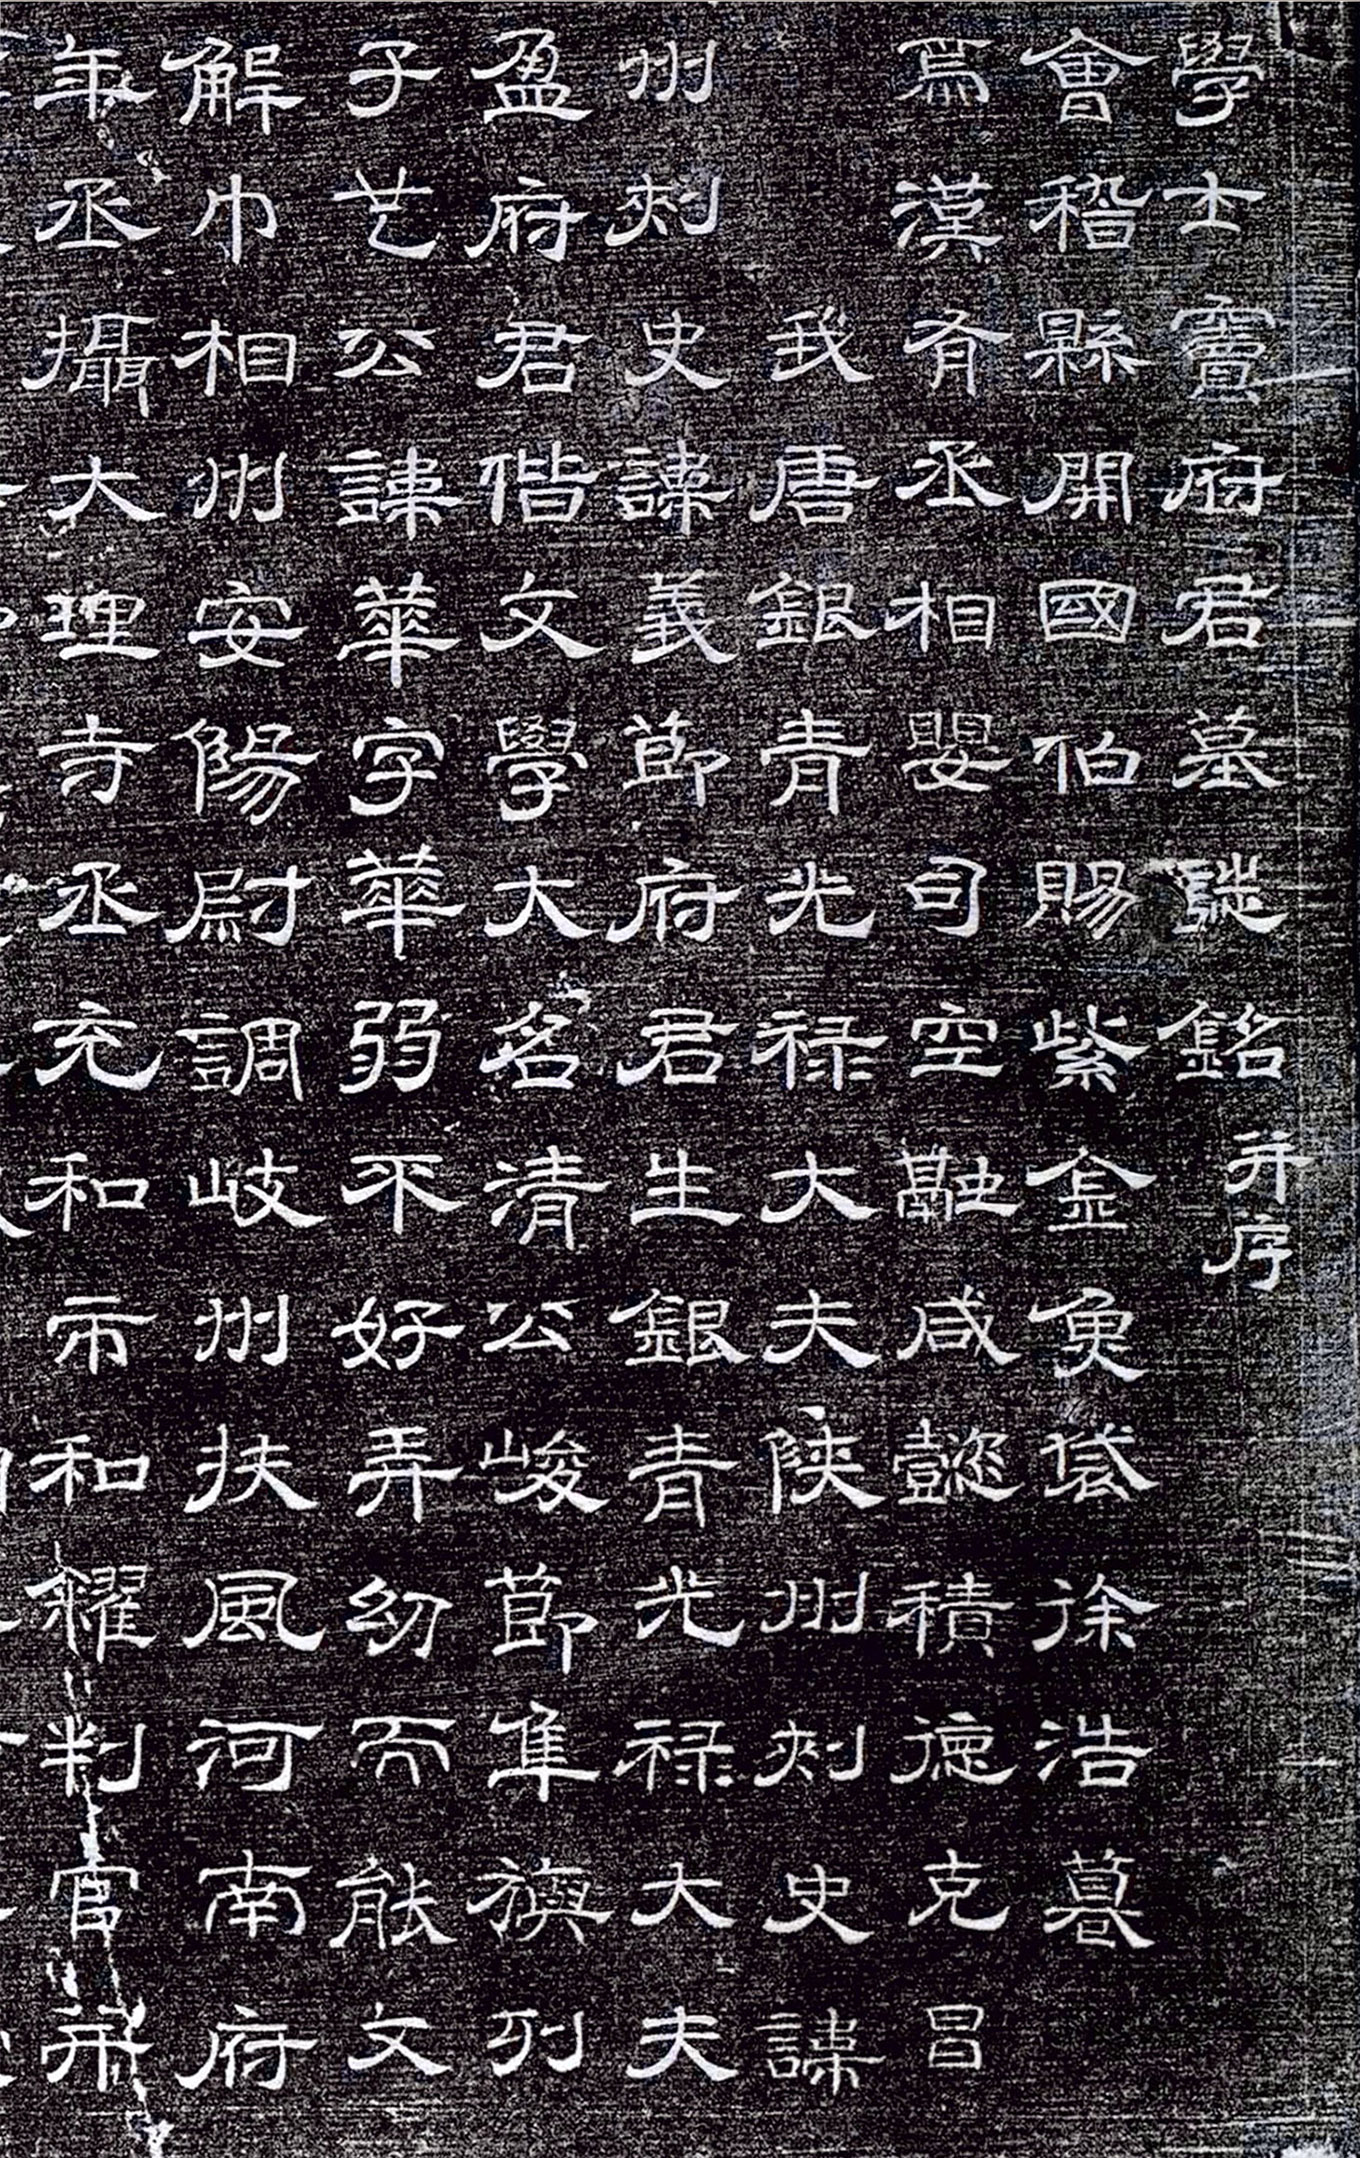 學士竇府君墓誌銘并序
會稽縣開國伯賜紫金魚袋徐浩
爲漢有丞相嬰司空融咸懿積德克昌
我唐銀青光禄大夫陝州刺史諱
州刺史諱義節府君生銀青光禄大夫
盈府君偕文學大名清公峻節隼旟列
子也公諱華字華弱不好弄幼而能文
解巾相州安陽尉調岐州扶風河南府
年丞攝大理寺丞充和市和糴判官飛